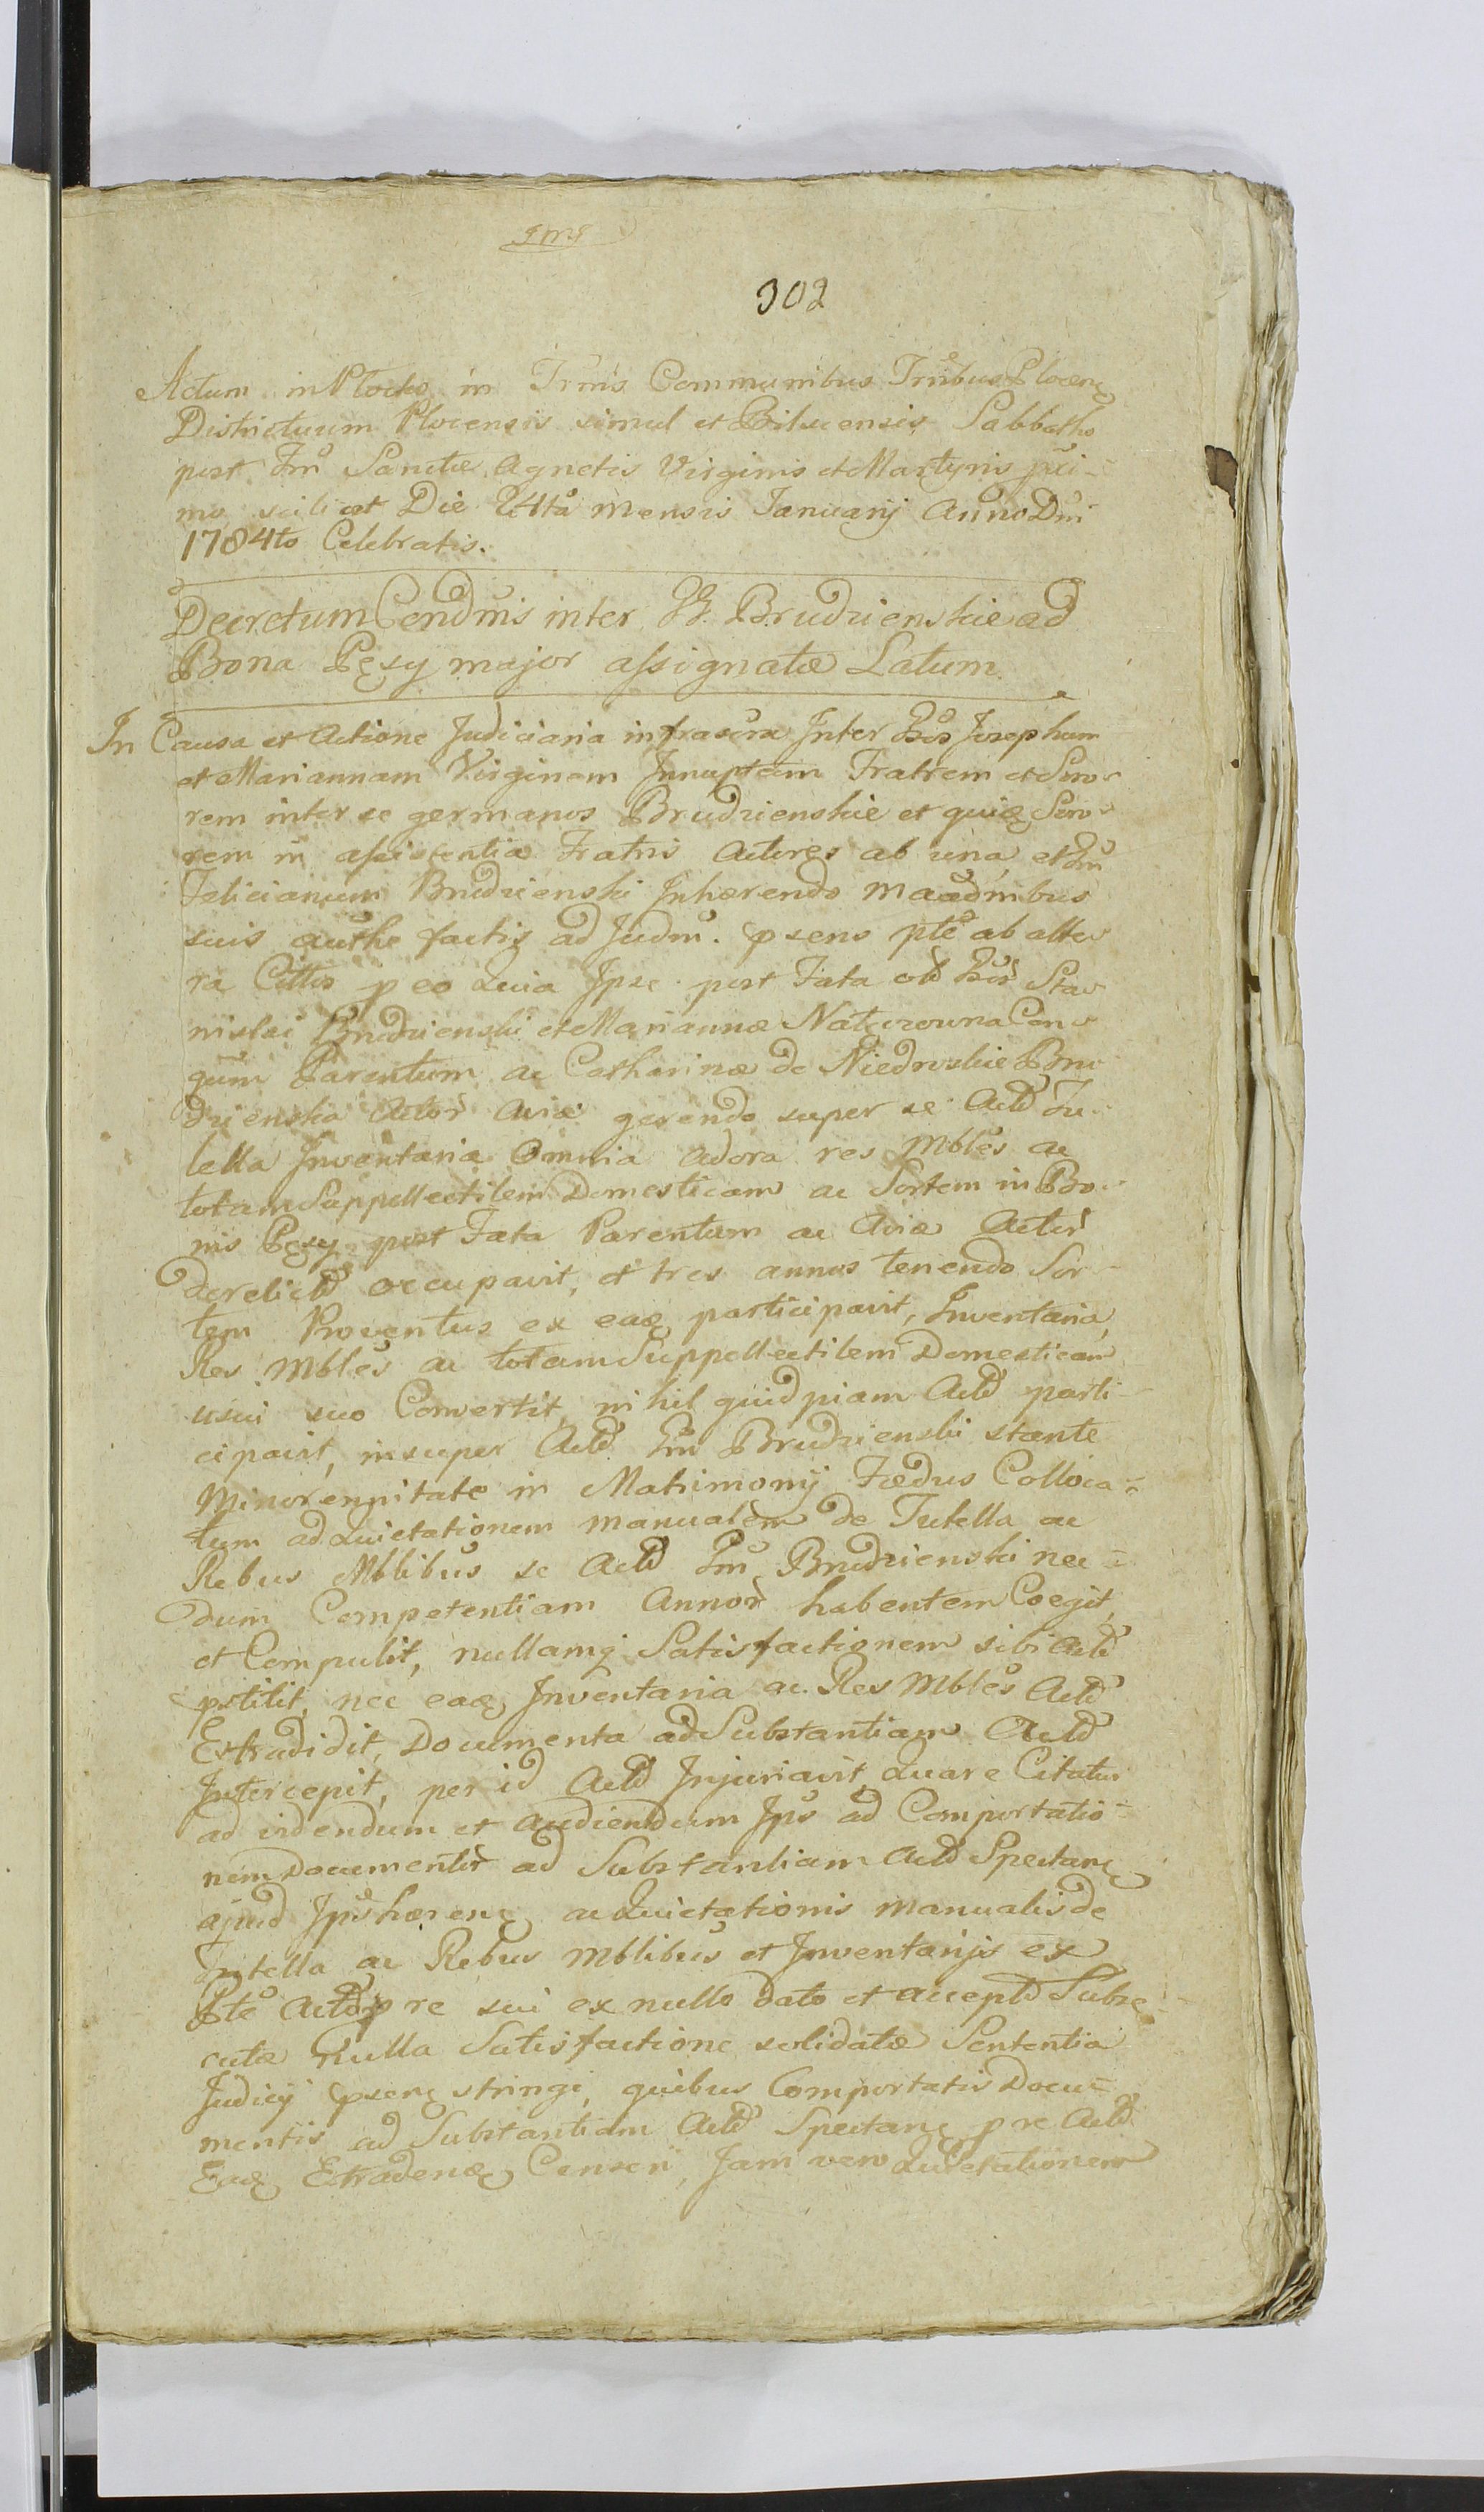 J.M.J
302
Actum in Plocko in Trnis Communibus Trribus Plocens
Districtuum Plocensis simul et Bilscensis Sabbatho
post Fm̃ Sanctæ Agnetis Virginis et Martyris pxi-
mo scilicet Die 24ta mensis Januarij Anno Dni
1784to Celebratis.
Decretum Cendnis inter GG. Brudzienskie ad
Bona Pęsy major assignatæ Latum
In Causa et Actione Judiciaria infrascra Inter Gsos Josephum
et Mariannam Virginem Innuptam Fratrem et Soro-
rem inter se germanos Brudzienskie et quidem Soro-
rem in assistentia Fratris Actores ab una et Gm
Felicianum Brudzienski Inhærendo Maadnibus
suis authe factis ad Judm. psens pte ab alte-
ra Cittos p eo Quia Ipse post Fata olð Gsor Sta-
nislai Brudzienski et Mariannæ Nakęzowna Con-
gum Parentum ac Catharinæ de Niedroskie Bru-
dzienska Actor Aviæ gerendo super se Actð Tu-
tella Inventaria Omnia Adora res Mbles ac
totam Suppellectilem Domesticam ac Sortem in Bo-
nis Pęsy post Fata Parentum ac Aviæ Actor
derelictð occupavit, et tres annos tenendo Sor-
tem Proventus ex eaq participavit, Inventaria,
Res Mbles ac totam Suppellectilem Domesticam
usui suo Convertit nihil quidpiam Actð parti-
cipavit, insuper Actð Gm Brudzienski stante
Minorennitate in Matrimonij Fædus Colloca-
tum ad Quietationem manualem de Tutella ac
Rebus Mblibus se Actð Gm Brudzienski nec-
dum Competentiam Annor habentem Coegit,
et Compulit, nullamq Satisfactionem sibi Actð
pstitit, nec eaq Inventaria ac Res Mbles Actð
Extradidit, Documenta ad Substantiam Actð
Intercepit, per id Actð Injuriavit, Quare Citatur
ad videndum et audiendum Ips ad Comportatio-
nem Documentor ad Substantiam Actð Spectanς
apud Ips hærenς ac Quietationis manualis de
Tutella ac Rebus Mblibus et Inventarijs ex
Pte Actð p re sui ex nullo dato et acceptð Subse-
cutæ Nulla Satisfactione solidatæ Sententia
Judicij psens stringi, quibus Comportatis Docu-
mentis ad Substantiam Actð Spectanς p re Actð
Eaq Etradenς Censeri, Jam vero Quietationem